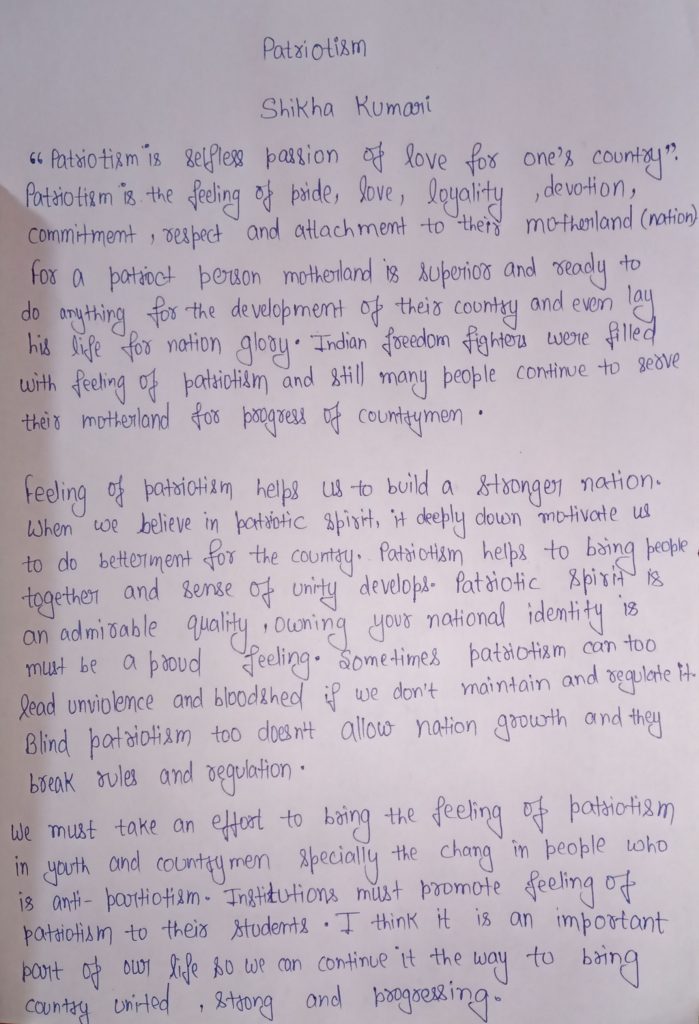 Patriotism
Shikha Kumari
“Patriotism" is selfless passion of love for one's country”.
Patriotism is the feeling of pride, love, loyality , devotion,
commitment , respect and attachment to their motherland (nation)
for a patrioct person motherland is superior and ready to
do anything for the development of their country and even lay
his life for nation glory. Indian freedom fighters were filled
with feeling of patriotism and still many people continue to serve
their motherland for progress of countrymen .
feeling of patriotism helps us to build a stronger nation.
When we believe in patriotic spirit, it deeply down motivate us
to do betterment for the country. Patriotism helps to bring people
together and sense of unity develops. Patriotic spirit is
an admirable quality , owning your national identity is
must be a proud feeling. Sometimes patriotism can too
lead unviolence and bloodshed if we don't maintain and regulate it.
Blind patriotism too doesn't allow nation growth and they
break rules and regulation .
We must take an effort to bring the feeling of patriotism
in youth and countrymen specially the chang in people who
is anti-partiotism. Institutions must promote feeling of
patriotism to their students . I think it is an important
part of our life so we can continue it the way to bring
country united , strong and progressing.